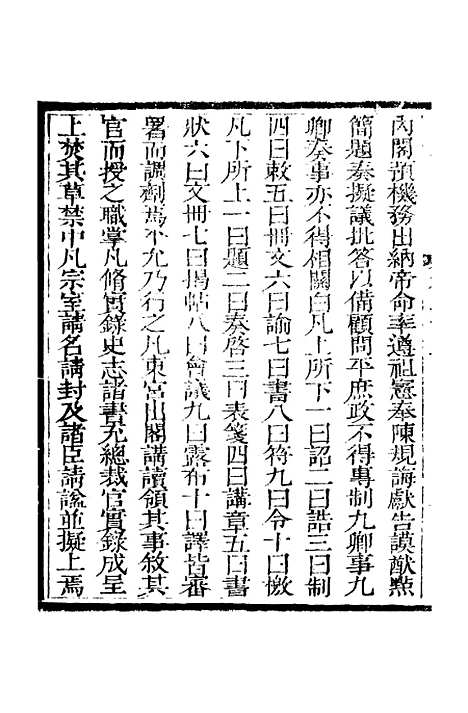 內閣預機務出納帝命率遵祖憲奉陳規誨獻告謨猷點
簡題奏擬議批答以備顧問平庶政不得專制九卿事九
卿奏事亦不得相關白凡上所下一曰詔二曰誥三曰制
四曰敕五曰冊文六曰諭七曰書八曰符九曰令十曰檄
凡下所上一曰題二曰奏啓三曰表箋四曰講章五曰書
狀六曰文冊七曰揭帖八曰會議九曰露布十曰譯皆審
署而調劑焉不允乃行之凡東宮出閣講讀領其事敘其
官而授之職掌凡脩實錄史志諸書充總裁官實錄成呈
上焚其草禁中凡宗室請名請封及諸臣請謚並擬上焉